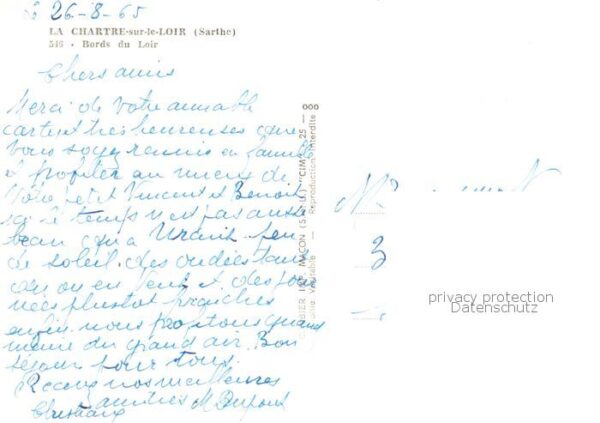 26-8-65
LA CHARTRE-sur-le-LOIR (Sarthe)
546 - Bords du Loir
Chers amis
Merci de votre aimable
carte et très heureuses que
vous soyez réunis en famille
et profiter au mieux de
votre petit Vincent et Benoit
ici le temps n'est pas aussi
beau qu'a peu
de soleil. des ondées tan
en des jour
nées plustot fraiches
enfin nous profitons quand
même du grand air. Bon
séjour pour tous.
Recevez nos meilleures
amitiés M Dupont
Christiane
COMBIER IMP. MACON (S.-&-L.) "CIM" 25 — 000
Photo Véritable — Reproduction interdite
3
privacy protection
Datenschutz